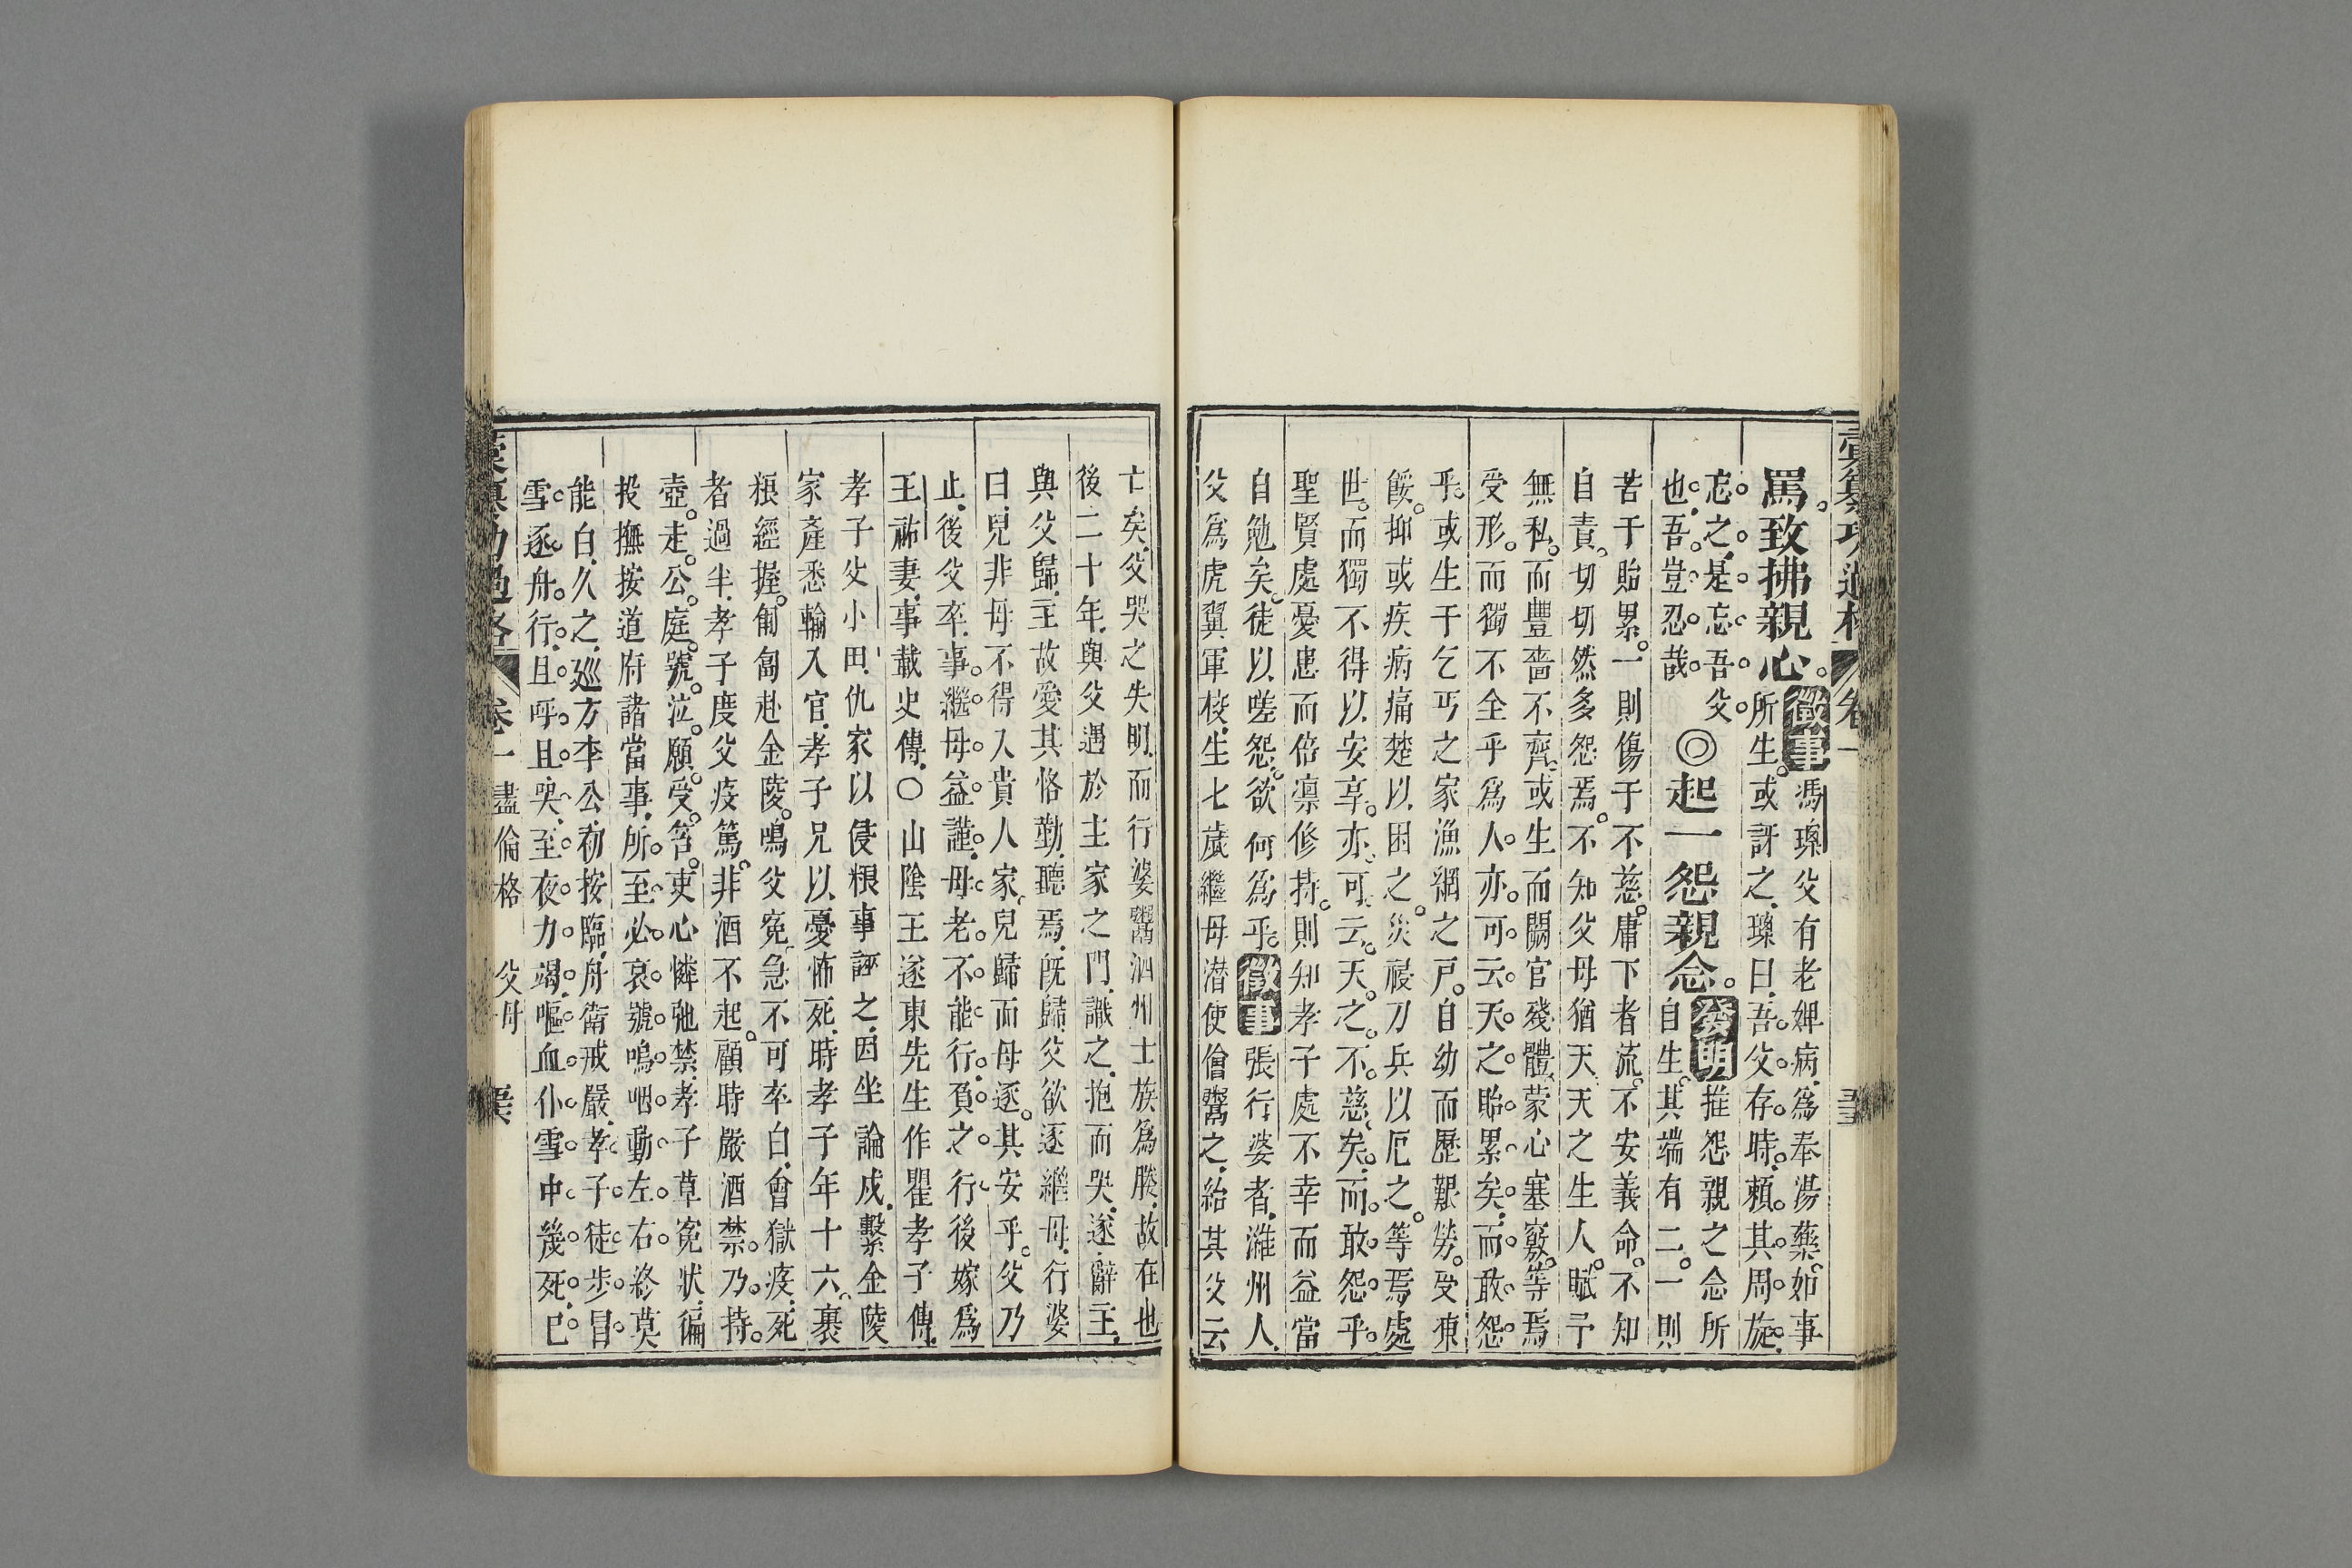 罵致拂親心。徵事馮瓅父有老婢病。爲奉湯藥。如事
所生。或訝之。瓅曰。吾父存時。頼其周旋。
忘之。是忘吾父
也。吾豈忍哉
◎起一怨親念。發明推怨親之念所
自生。其端有二。一則
苦于貽累。一則傷于不慈。庸下者流。不安義命。不知
自責。切切然多怨焉。不知父母猶天。天之生人。賦予
無私。而豐嗇不齊。或生而闕官殘體。蒙心塞竅。等焉
受形。而獨不全乎爲人。亦可云天之貽累矣。而敢怨
乎。或生于乞丐之家。漁網之戸。自幼而歷艱勞。受凍
餒。抑或疾病痛楚以困之。災祲刀兵以厄之。等焉處
世。而獨不得以安享。亦可云天之不慈矣。而敢怨乎。
聖賢處憂患而倍凛修持。則知孝子處不幸而益當
自勉矣。徒以嗟怨。欲何爲乎。徵事張行婆者。濰州人。
父爲虎翼軍校。生七歲繼母潛使儈鬻之。紿其父云
亡矣。父哭之失明。而行婆鬻泗州士族爲媵。故在也
後二十年。與父遇於主家之門。識之。抱而哭。遂辭主。
與父歸。主故愛其恪勤。聽焉。旣歸。父欲逐繼母。行婆
曰。兒非母不得入貴人家。兒歸而母逐。其安乎。父乃
止。後父卒。事繼母益謹。母老不能行。負之行後嫁爲
王祐妻。事載史傳。○山陰王遂東先生作瞿孝子傳。
孝子父小田。仇家以侵粮事誣之。因坐論戍。繫金陵
家產悉輸入官。孝子兄以憂怖死。時孝子年十六。裹
粮經握。匍匐赴金陵。鳴父寃。急不可卒白。會獄疫。死
者過半。孝子度父疫篤。非酒不起。顧時嚴酒禁。乃持
壺。走公庭。號泣。願受笞。吏心憐弛禁。孝子草寃狀。徧
投撫按道府諸當事。所至必哀號嗚咽。動左右。終莫
能白。久之。廵方李公。初按臨。舟衛戒嚴。孝子徒步。冒
雪。逐舟行。且呼且哭。至夜力竭。嘔血仆雪中。幾死。巳
卷一 盡倫格 父母